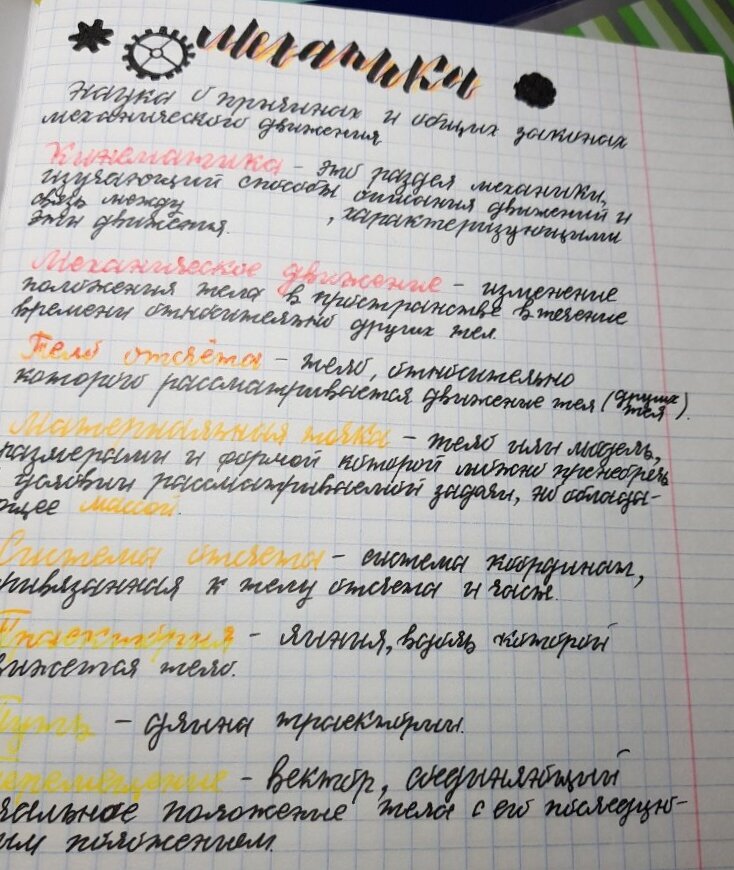 Механика
Наука о причинах и общих законах
механического движения
Кинематика - это раздел механики,
изучающий способы описания движений и
связь между , характеризующими
эти движения.
Механическое движение - изменение
положения тела в пространстве в течение
времени относительно других тел.
Тело отсчёта - тело, относительно
которого рассматривается движение тел (других тел).
Материальная точка - тело или модель,
размерами и формой которой можно пренебречь
условии рассматриваемой задачи, но облада-
ющее массой.
Система отсчета - система координат,
ривязанная к телу отсчета и часы.
Траектория - линия, вдоль которой
вижется тело.
Путь - длина траектории.
еремещение - вектор, соединяющий
чальное положение тела с его последую-
им положением.